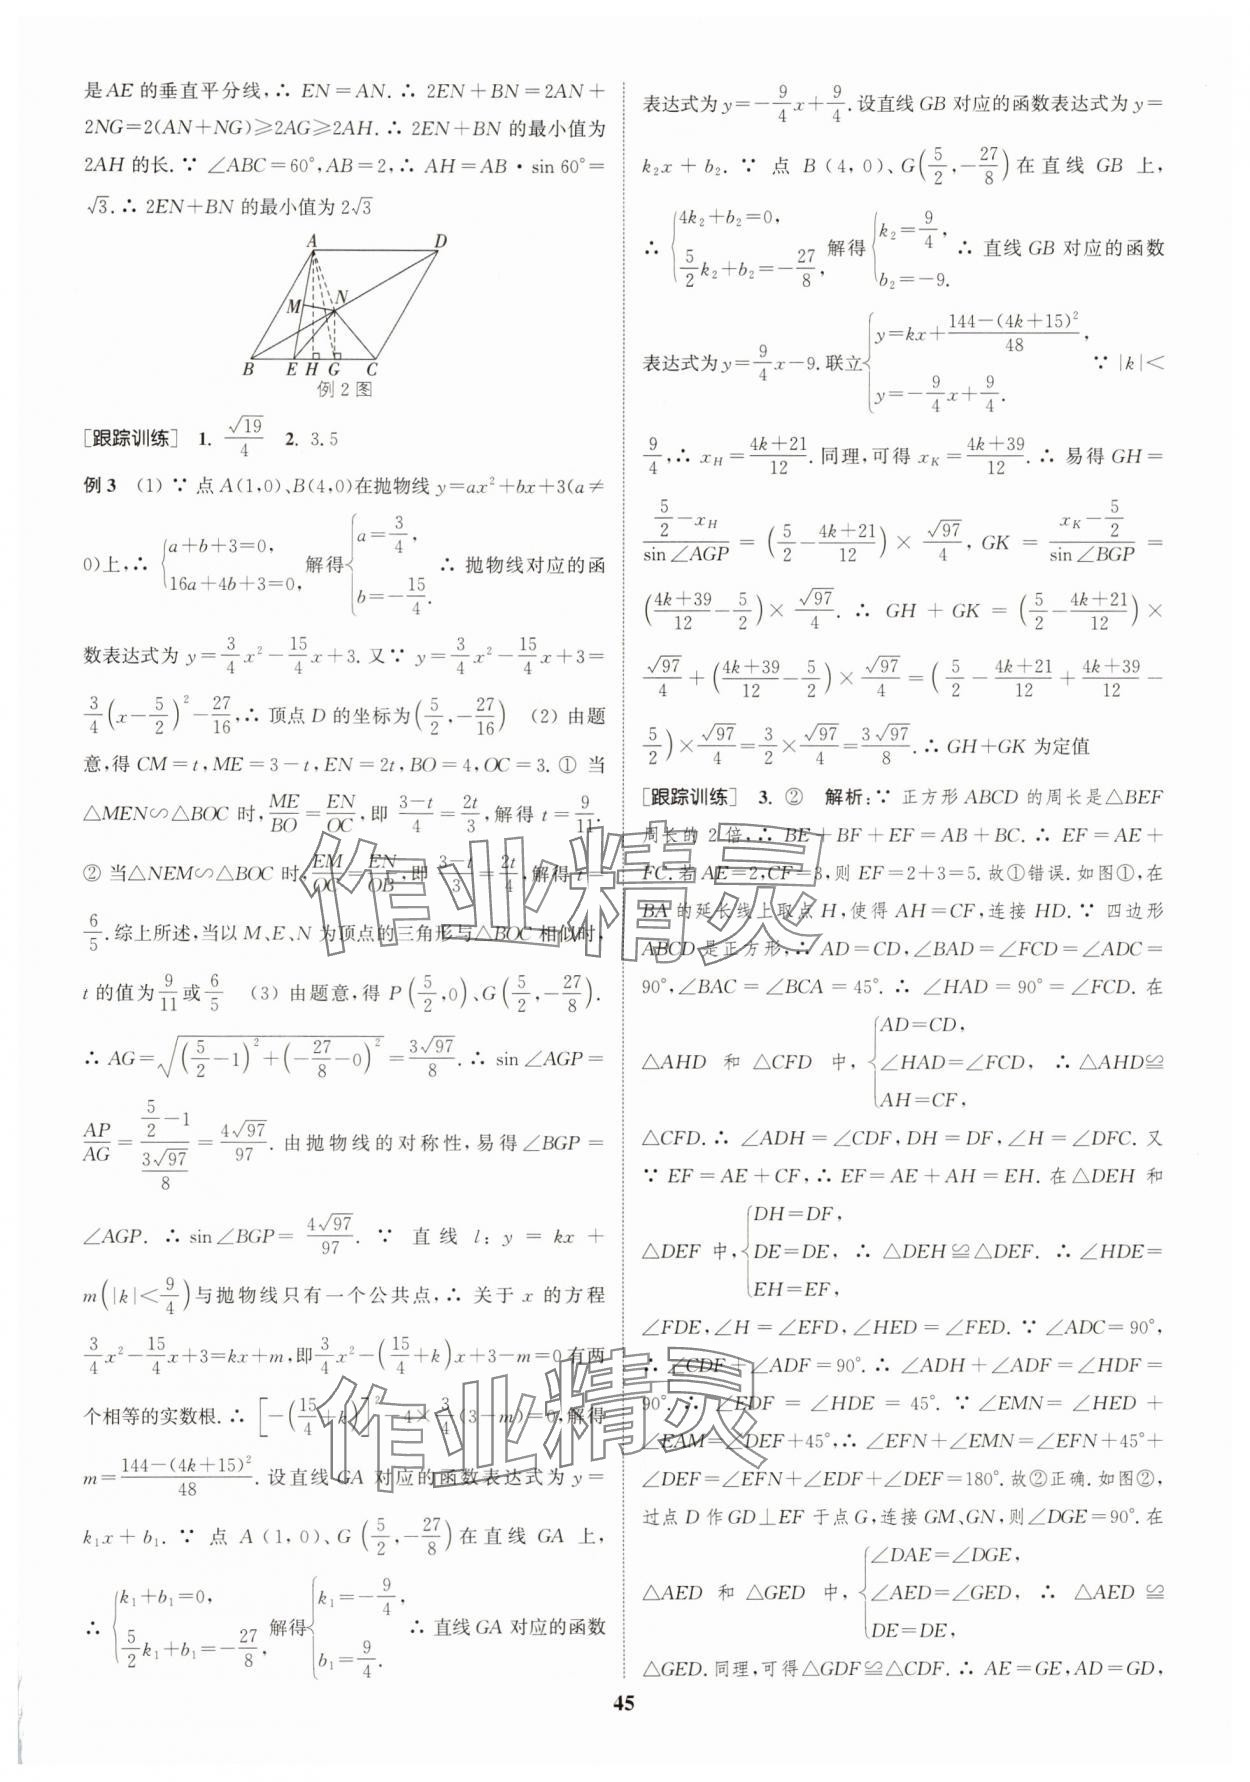 是AE的垂直平分线,∴ EN=AN.∴ 2EN+BN=2AN+
2NG=2(AN+NG)≥2AG≥2AH.∴ 2EN+BN的最小值为
2AH的长.∵ ∠ABC=60°,AB=2,∴ AH=AB·sin 60°=
√3.∴ 2EN+BN的最小值为2√3
A D
M N
B E H G C
例2图
[跟踪训练] 1. √19/4 2. 3.5
例3 (1) ∵ 点A(1,0)、B(4,0)在抛物线y=ax²+bx+3(a≠
0)上,∴ {a+b+3=0, 16a+4b+3=0, 解得{a=3/4, b=-15/4. ∴ 抛物线对应的函
数表达式为y=3/4x²-15/4x+3.又∵ y=3/4x²-15/4x+3=
3/4(x-5/2)²-27/16,∴ 顶点D的坐标为(5/2,-27/16) (2) 由题
意,得CM=t,ME=3-t,EN=2t,BO=4,OC=3.① 当
△MEN∽△BOC时,ME/BO=EN/OC,即(3-t)/4=2t/3,解得t=9/11.
② 当△NEM∽△BOC时,EM/OC=EN/OB,即(3-t)/3=2t/4,解得t=
6/5.综上所述,当以M、E、N为顶点的三角形与△BOC相似时,
t的值为9/11或6/5 (3) 由题意,得P(5/2,0)、G(5/2,-27/8).
∴ AG=√((5/2-1)²+(-27/8-0)²)=3√97/8.∴ sin∠AGP=
AP/AG=(5/2-1)/(3√97/8)=4√97/97.由抛物线的对称性,易得∠BGP=
∠AGP.∴ sin∠BGP=4√97/97.∵ 直线l:y=kx+
m(|k|<9/4)与抛物线只有一个公共点,∴ 关于x的方程
3/4x²-15/4x+3=kx+m,即3/4x²-(15/4+k)x+3-m=0有两
个相等的实数根.∴ [-(15/4+k)]²-4×3/4(3-m)=0,解得
m=(144-(4k+15)²)/48.设直线GA对应的函数表达式为y=
k₁x+b₁.∵ 点A(1,0)、G(5/2,-27/8)在直线GA上,
∴ {k₁+b₁=0, 5/2k₁+b₁=-27/8, 解得{k₁=-9/4, b₁=9/4. ∴ 直线GA对应的函数
表达式为y=-9/4x+9/4.设直线GB对应的函数表达式为y=
k₂x+b₂.∵ 点B(4,0)、G(5/2,-27/8)在直线GB上,
∴ {4k₂+b₂=0, 5/2k₂+b₂=-27/8, 解得{k₂=9/4, b₂=-9. ∴ 直线GB对应的函数
表达式为y=9/4x-9.联立{y=kx+(144-(4k+15)²)/48, y=-9/4x+9/4. ∵ |k|<
9/4,∴ x_H=(4k+21)/12.同理,可得x_K=(4k+39)/12.∴ 易得GH=
(5/2-x_H)/sin∠AGP=(5/2-(4k+21)/12)×√97/4,GK=(x_K-5/2)/sin∠BGP=
((4k+39)/12-5/2)×√97/4.∴ GH+GK=(5/2-(4k+21)/12)×
√97/4+((4k+39)/12-5/2)×√97/4=(5/2-(4k+21)/12+(4k+39)/12-
5/2)×√97/4=3/2×√97/4=3√97/8.∴ GH+GK为定值
[跟踪训练] 3. ② 解析:∵ 正方形ABCD的周长是△BEF
周长的2倍,∴ BE+BF+EF=AB+BC.∴ EF=AE+
FC.若AE=2,CF=3,则EF=2+3=5.故①错误.如图①,在
BA的延长线上取点H,使得AH=CF,连接HD.∵ 四边形
ABCD是正方形,∴ AD=CD,∠BAD=∠FCD=∠ADC=
90°,∠BAC=∠BCA=45°.∴ ∠HAD=90°=∠FCD.在
△AHD和△CFD中,{AD=CD, ∠HAD=∠FCD, AH=CF, ∴ △AHD≌
△CFD.∴ ∠ADH=∠CDF,DH=DF,∠H=∠DFC.又
∵ EF=AE+CF,∴ EF=AE+AH=EH.在△DEH和
△DEF中,{DH=DF, DE=DE, EH=EF, ∴ △DEH≌△DEF.∴ ∠HDE=
∠FDE,∠H=∠EFD,∠HED=∠FED.∵ ∠ADC=90°,
∴ ∠CDF+∠ADF=90°.∴ ∠ADH+∠ADF=∠HDF=
90°.∴ ∠EDF=∠HDE=45°.∵ ∠EMN=∠HED+
∠EAM=∠DEF+45°,∴ ∠EFN+∠EMN=∠EFN+45°+
∠DEF=∠EFN+∠EDF+∠DEF=180°.故②正确.如图②,
过点D作GD⊥EF于点G,连接GM、GN,则∠DGE=90°.在
△AED和△GED中,{∠DAE=∠DGE, ∠AED=∠GED, DE=DE, ∴ △AED≌
△GED.同理,可得△GDF≌△CDF.∴ AE=GE,AD=GD,
45
作业精灵
作业精灵